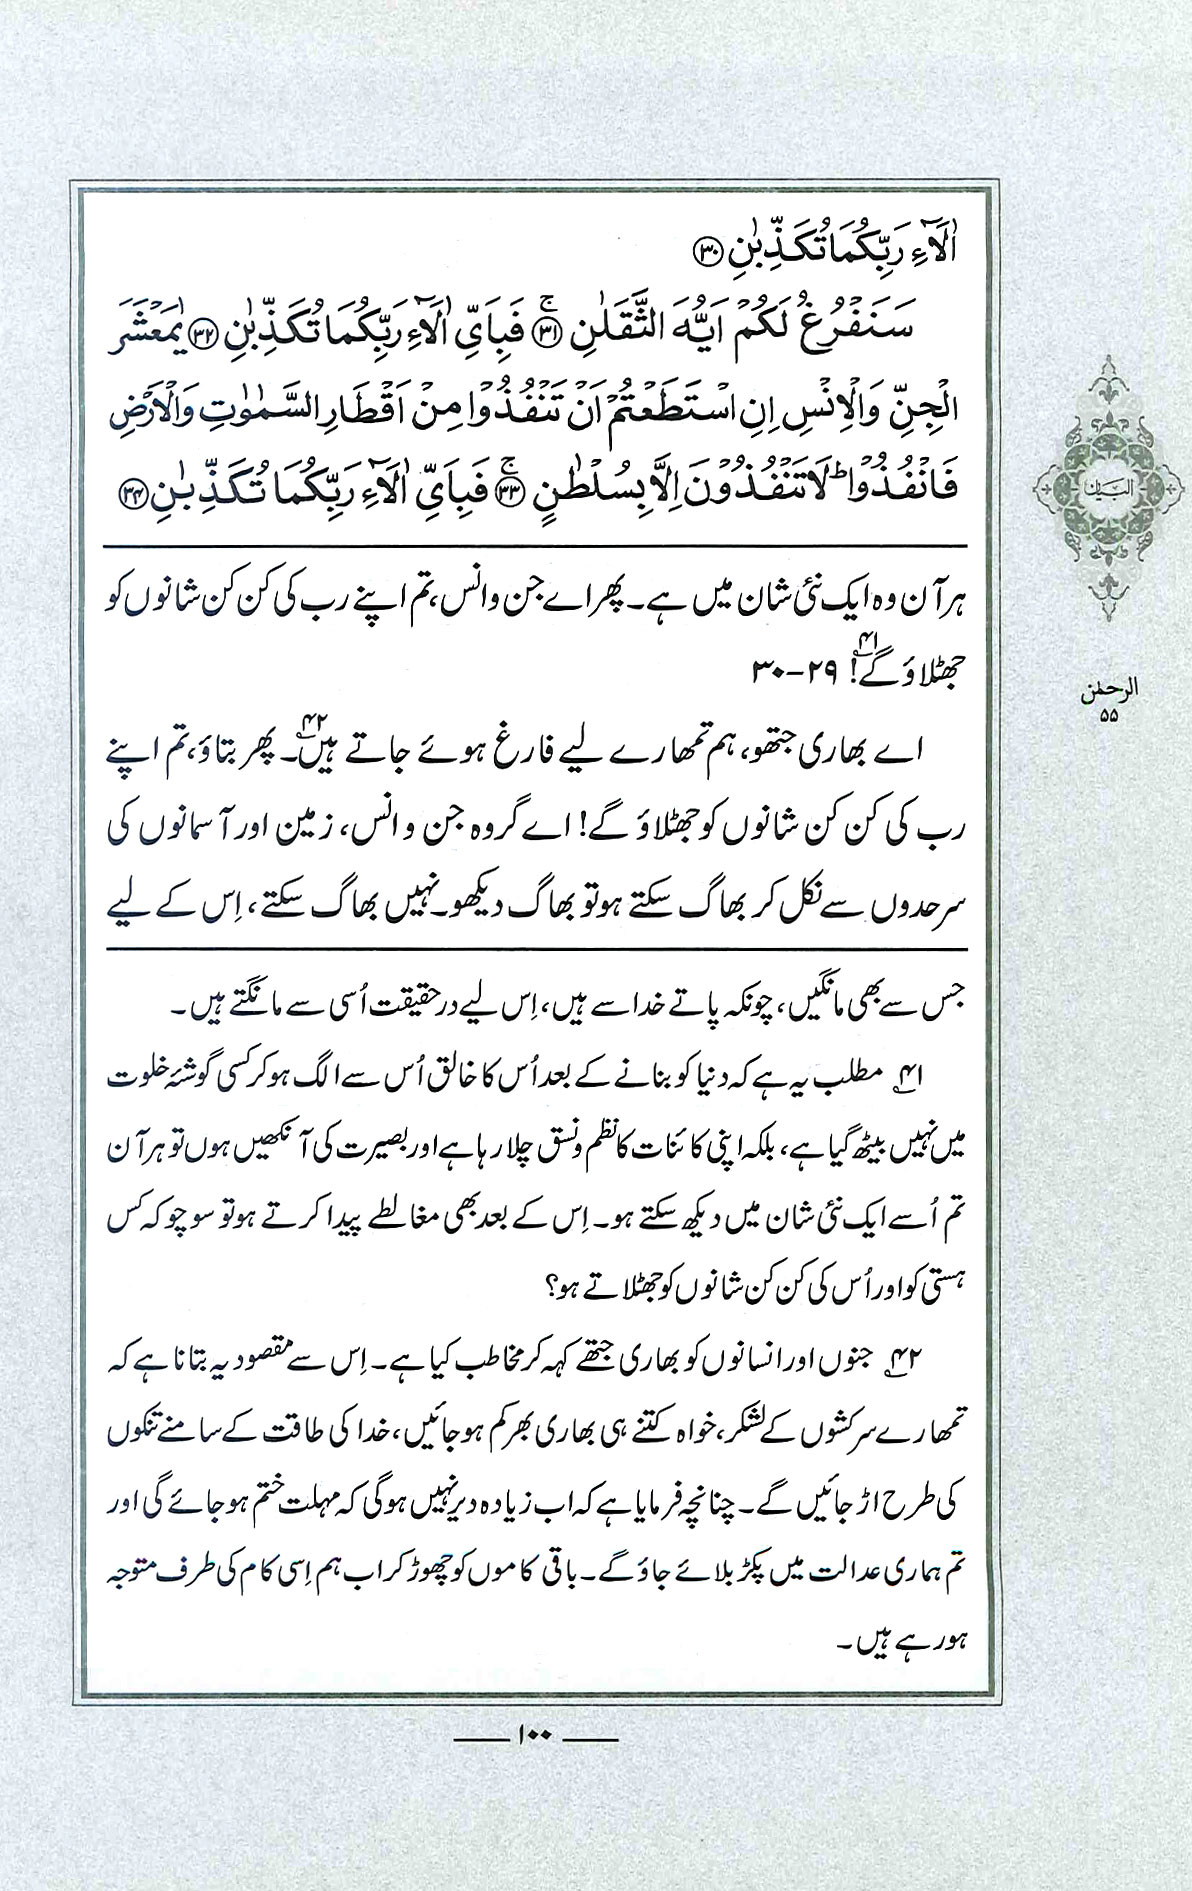 اٰلَآءِ رَبِّكُمَا تُكَذِّبٰنِ ﴿۳۰﴾
سَنَفْرُغُ لَكُمْ اَيُّهَ الثَّقَلٰنِ ﴿۳۱﴾ۚ فَبِاَيِّ اٰلَآءِ رَبِّكُمَا تُكَذِّبٰنِ ﴿۳۲﴾ يٰمَعْشَرَ
الْجِنِّ وَالْاِنْسِ اِنِ اسْتَطَعْتُمْ اَنْ تَنْفُذُوْا مِنْ اَقْطَارِ السَّمٰوٰتِ وَالْاَرْضِ
فَانْفُذُوْاؕ لَا تَنْفُذُوْنَ اِلَّا بِسُلْطٰنٍ ﴿۳۳﴾ۚ فَبِاَيِّ اٰلَآءِ رَبِّكُمَا تُكَذِّبٰنِ ﴿۳۴﴾
البیان
الرحمٰن
۵۵
ہر آن وہ ایک نئی شان میں ہے۔ پھر اے جن و انس، تم اپنے رب کی کن کن شانوں کو
جھٹلاؤ گے!۴۱ ۲۹-۳۰
اے بھاری جتھو، ہم تمھارے لیے فارغ ہوئے جاتے ہیں۴۲۔ پھر بتاؤ، تم اپنے
رب کی کن کن شانوں کو جھٹلاؤ گے! اے گروہ جن و انس، زمین اور آسمانوں کی
سرحدوں سے نکل کر بھاگ سکتے ہو تو بھاگ دیکھو۔ نہیں بھاگ سکتے، اِس کے لیے
جس سے بھی مانگیں، چونکہ پاتے خدا سے ہیں، اِس لیے درحقیقت اُسی سے مانگتے ہیں۔
۴۱؎ مطلب یہ ہے کہ دنیا کو بنانے کے بعد اُس کا خالق اُس سے الگ ہو کر کسی گوشۂ خلوت
میں نہیں بیٹھ گیا ہے، بلکہ اپنی کائنات کا نظم و نسق چلا رہا ہے اور بصیرت کی آنکھیں ہوں تو ہر آن
تم اُسے ایک نئی شان میں دیکھ سکتے ہو۔ اِس کے بعد بھی مغالطے پیدا کرتے ہو تو سوچو کہ کس
ہستی کو اور اُس کی کن کن شانوں کو جھٹلاتے ہو؟
۴۲؎ جنوں اور انسانوں کو بھاری جتھے کہہ کر مخاطب کیا ہے۔ اِس سے مقصود یہ بتانا ہے کہ
تمھارے سرکشوں کے لشکر، خواہ کتنے ہی بھاری بھرکم ہو جائیں، خدا کی طاقت کے سامنے تنکوں
کی طرح اڑ جائیں گے۔ چنانچہ فرمایا ہے کہ اب زیادہ دیر نہیں ہوگی کہ مہلت ختم ہو جائے گی اور
تم ہماری عدالت میں پکڑ بلائے جاؤ گے۔ باقی کاموں کو چھوڑ کر اب ہم اِسی کام کی طرف متوجہ
ہو رہے ہیں۔
۱۰۰